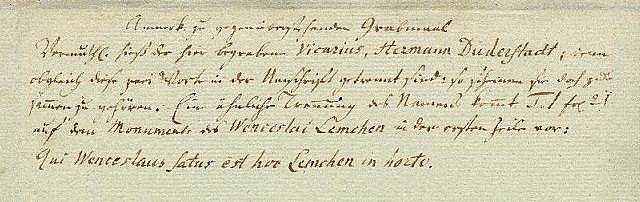 Anmerk. zu gegenüberstehenden Grabmaal
Vermuthl. hiess der hier begrabene Vicarius, Hermann Duderstadt; denn
obgleich diese zwei Worte in der Umschrift getrennt sind: so scheinen sie doch zu
sammen zu gehören. Eine ähnliche Trennung des Namens kommt T. I fol. 21
auf dem Monumente des Wenceslai Lemchen in der ersten Zeile vor:
Qui Wenceslaus satus est hoc Lemchen in horto.